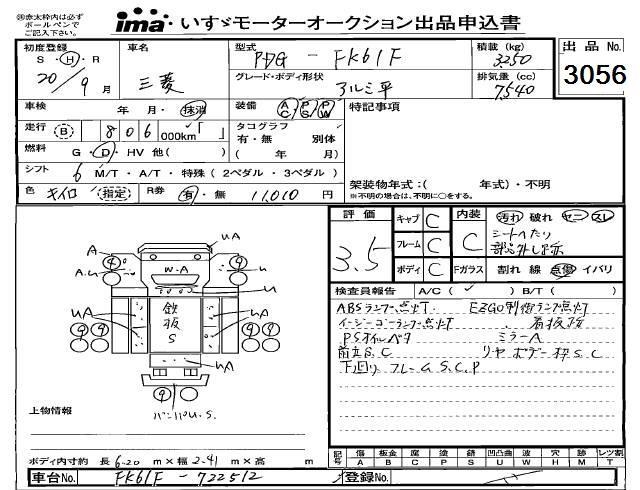 ※赤太枠内は必ず
ボールペンで
ご記入下さい。
ima いすゞモーターオークション出品申込書
初度登録 車名 型式 積載 (kg) 出品 No.
S・H・R 三菱 PDG - FK61F 3250
20/9月 グレード・ボディ形状 排気量 (cc) 3056
アルミ平 7,540
車検 年・月・抹消 装備 A/C P/S P/W 特記事項
走行 B 806 000km「 」 タコグラフ
有・無 別体
燃料 G・D・HV 他( ) ( 年 月)
シフト 6 M/T・A/T・特殊(2ペダル・3ペダル)
架装物年式:( 年式)・不明
色 キイロ (指定) R券 有・無 11,010 円
※不明の場合は、不明に○をする。
評価 キャブ C 内装 汚れ 破れ ヤニ スレ
3.5 フレーム C C シートヘたり
ボディ C Fガラス 割れ 線 点傷 イバリ
検査員報告 A/C( ✓ ) B/T( )
ABSランプ点灯 EZGO制御ランプ点灯
イージーゴーランプ点灯 看板跡
PSオイルベタ ミラーA
前立S.C リヤボデー枠S.C
下回り フレームS.C.P
A UA
W・A
A.U U
UA 鉄板S UA
UA
バンパU.S.
上物情報
ボディ内寸約 長 6.20 m×幅 2.41 m×高 m
記号 傷 板金 腐 塗 錆 凹凸曲 波 穴 M レツ割
A B C P S U W H M T
車台No. FK61F - 722512 登録No.